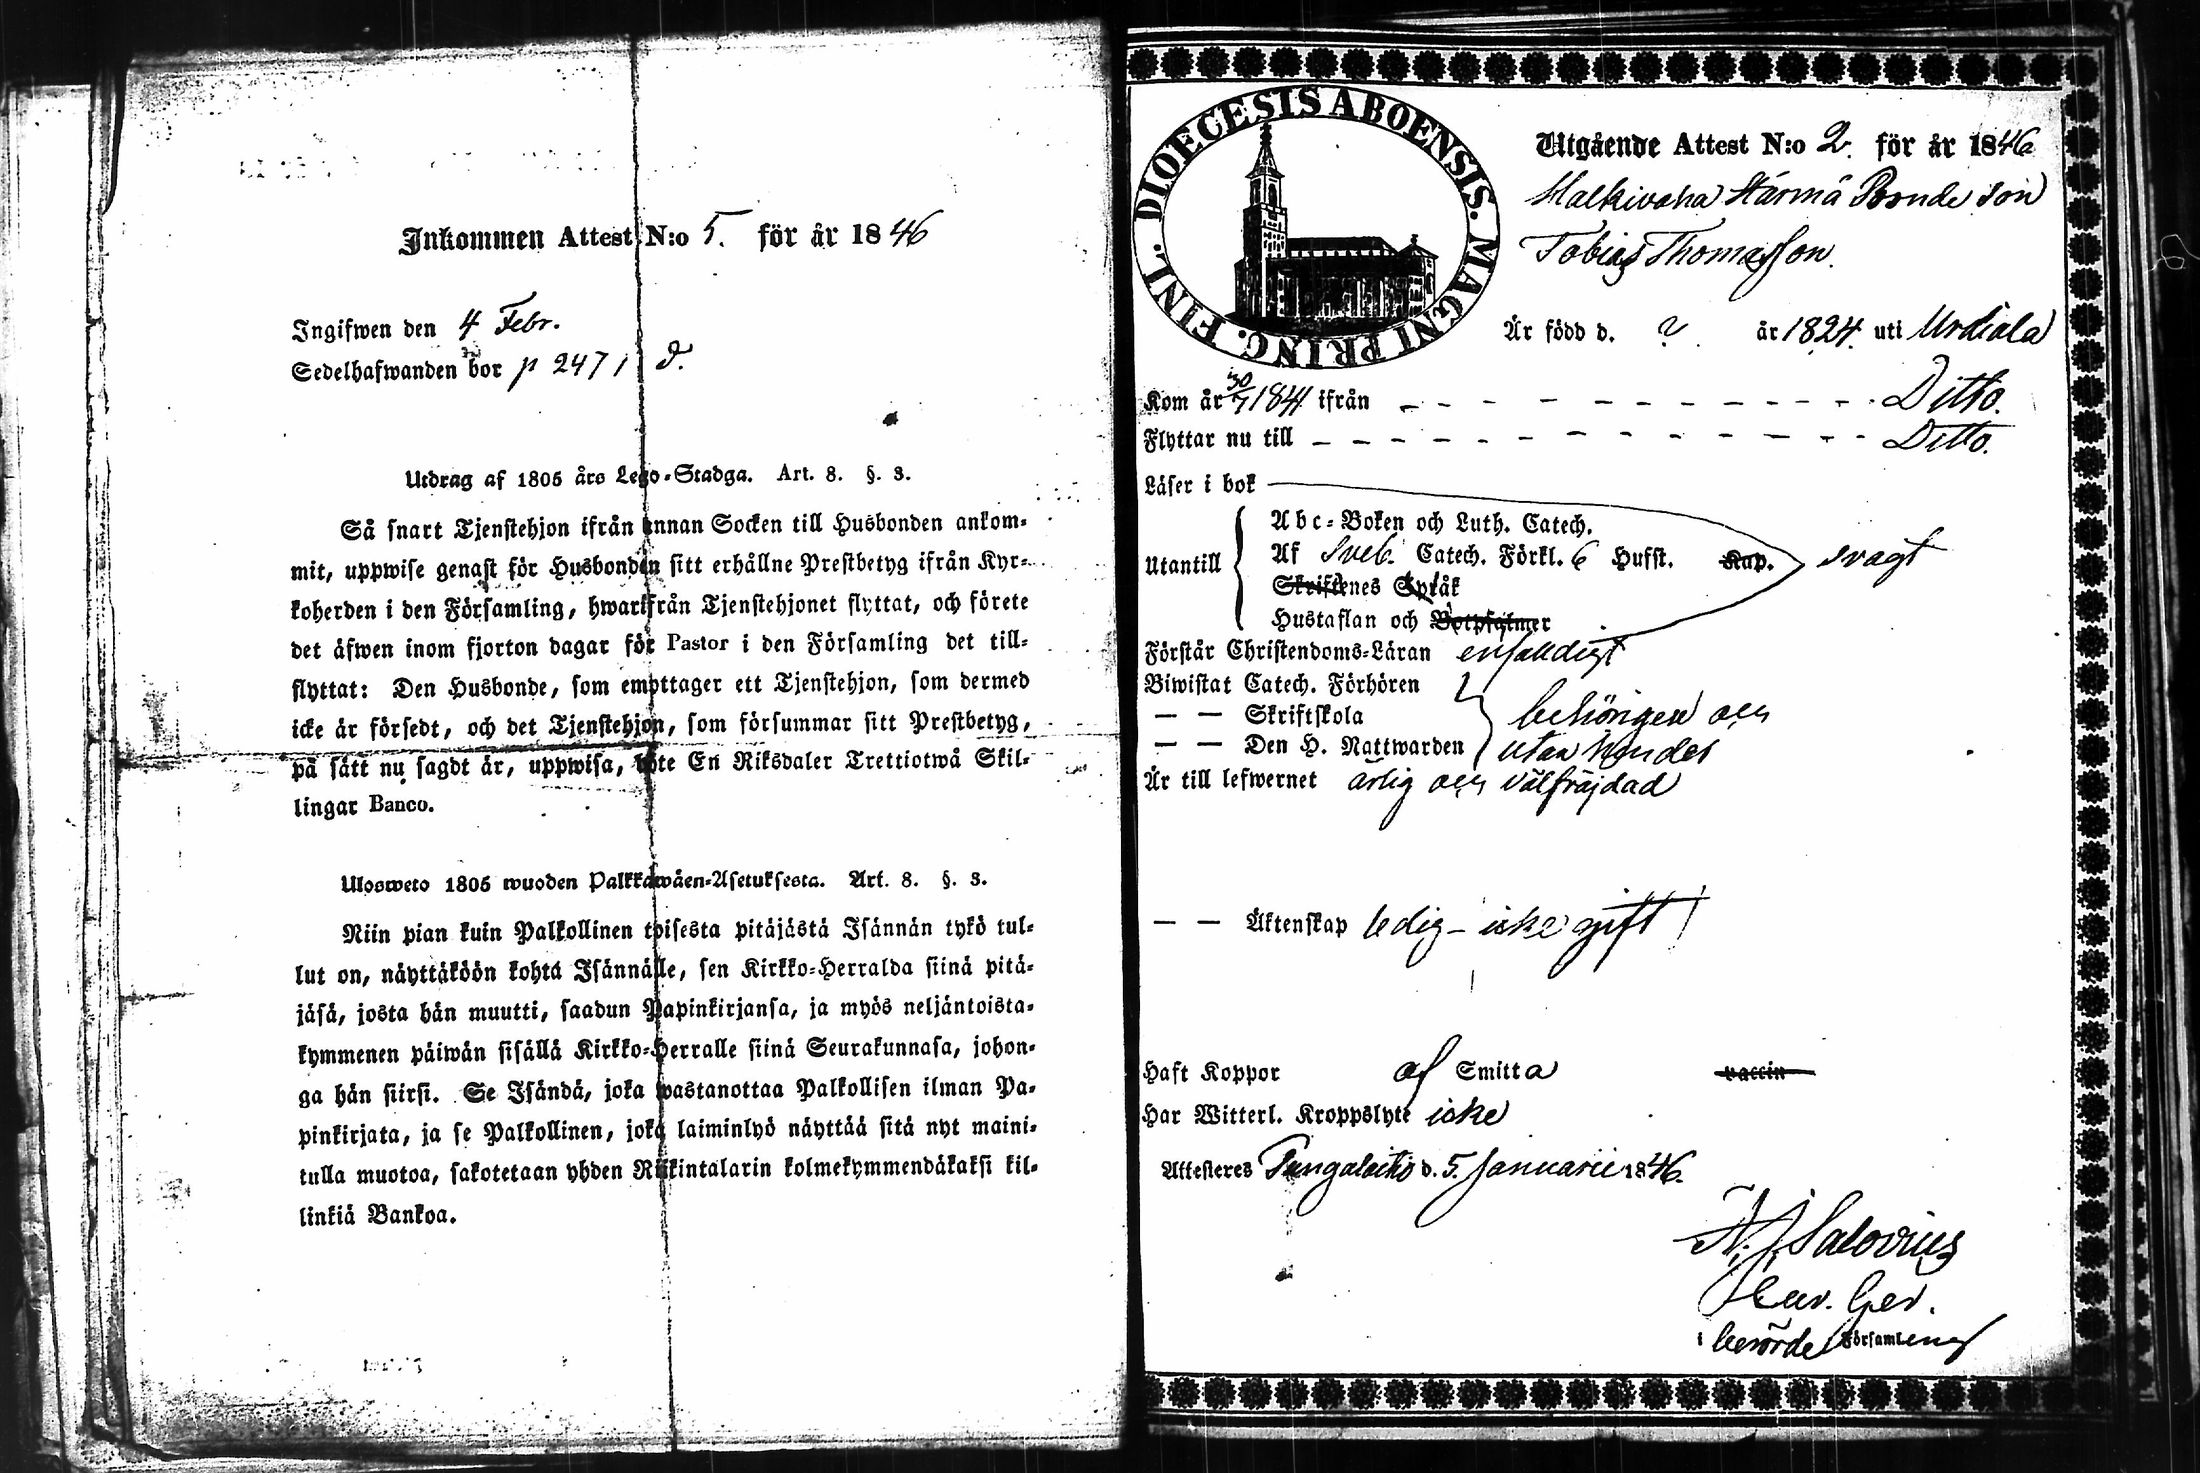 Inkommen Attest N:o 5. för år 1846
Ingifwen den 4 Febr.
Sedelhafwanden bor p 247
Utdrag af 1805 års Lego-Stadga. Art. 8. §. 3.
Så snart Tjenstehjon ifrån annan Socken till Husbonden ankom-
mit, uppwise genast för Husbonden sitt erhållne Prestbetyg ifrån Kyr-
koherden i den Församling, hwarifrån Tjenstehjonet flyttat, och förete
det äfwen inom fjorton dagar för Pastor i den Församling det till-
flyttat: Den Husbonde, som emottager ett Tjenstehjon, som dermed
icke är försedt, och det Tjenstehjon, som försummar sitt Prestbetyg,
på sätt nu sagdt är, uppwisa, böte En Riksdaler Trettiotwå Skil-
lingar Banco.
Ulosweto 1805 wuoden Palkkawäen-Asetuksesta. Art. 8. §. 3.
Niin pian kuin Palkollinen toisesta pitäjästä Isännän tykö tul-
lut on, näyttäköön kohta Isännälle, sen Kirkko-Herralda siinä pitä-
jäsä, josta hän muutti, saadun Papinkirjansa, ja myös neljäntoista-
kymmenen päiwän sisällä Kirkko-Herralle siinä Seurakunnasa, johon-
ga hän siirsi. Se Isändä, joka wastanottaa Palkollisen ilman Pa-
pinkirjata, ja se Palkollinen, joka laiminlyö näyttää sitä nyt maini-
tulla muotoa, sakotetaan yhden Riikintalarin kolmekymmendäkaksi kil-
linkiä Bankoa.
DIOECESIS ABOENSIS. MAGNI PRINC. FINL.
Utgående Attest N:o 2. för år 1846
Halkivaha Härmä Bonde son
Tobias Thomasson.
Är född d. ? år 1824. uti Urdiala
Kom år 30/7 1841 ifrån Ditto.
Flyttar nu till Ditto.
Läser i bok
Utantill
Abc-Boken och Luth. Catech.
Af Sveb. Catech. Förkl. 6 Hufst. Kap. svagt
Skriftenes Språk
Hustaflan och Botpsalmer
Förstår Christendoms-Läran enfalldigt
Biwistat Catech. Förhören
— — Skriftskola behörigen och
— — Den H. Nattwarden utan hinder
Är till lefwernet ärlig och välfräjdad
— — Äktenskap ledig – icke gift
Haft Koppor af Smitta vaccin
Har Witterl. Kroppslyte icke
Attesteres Pungalaitio d. 5. Januarii 1846.
Salovius
i berörde Församling